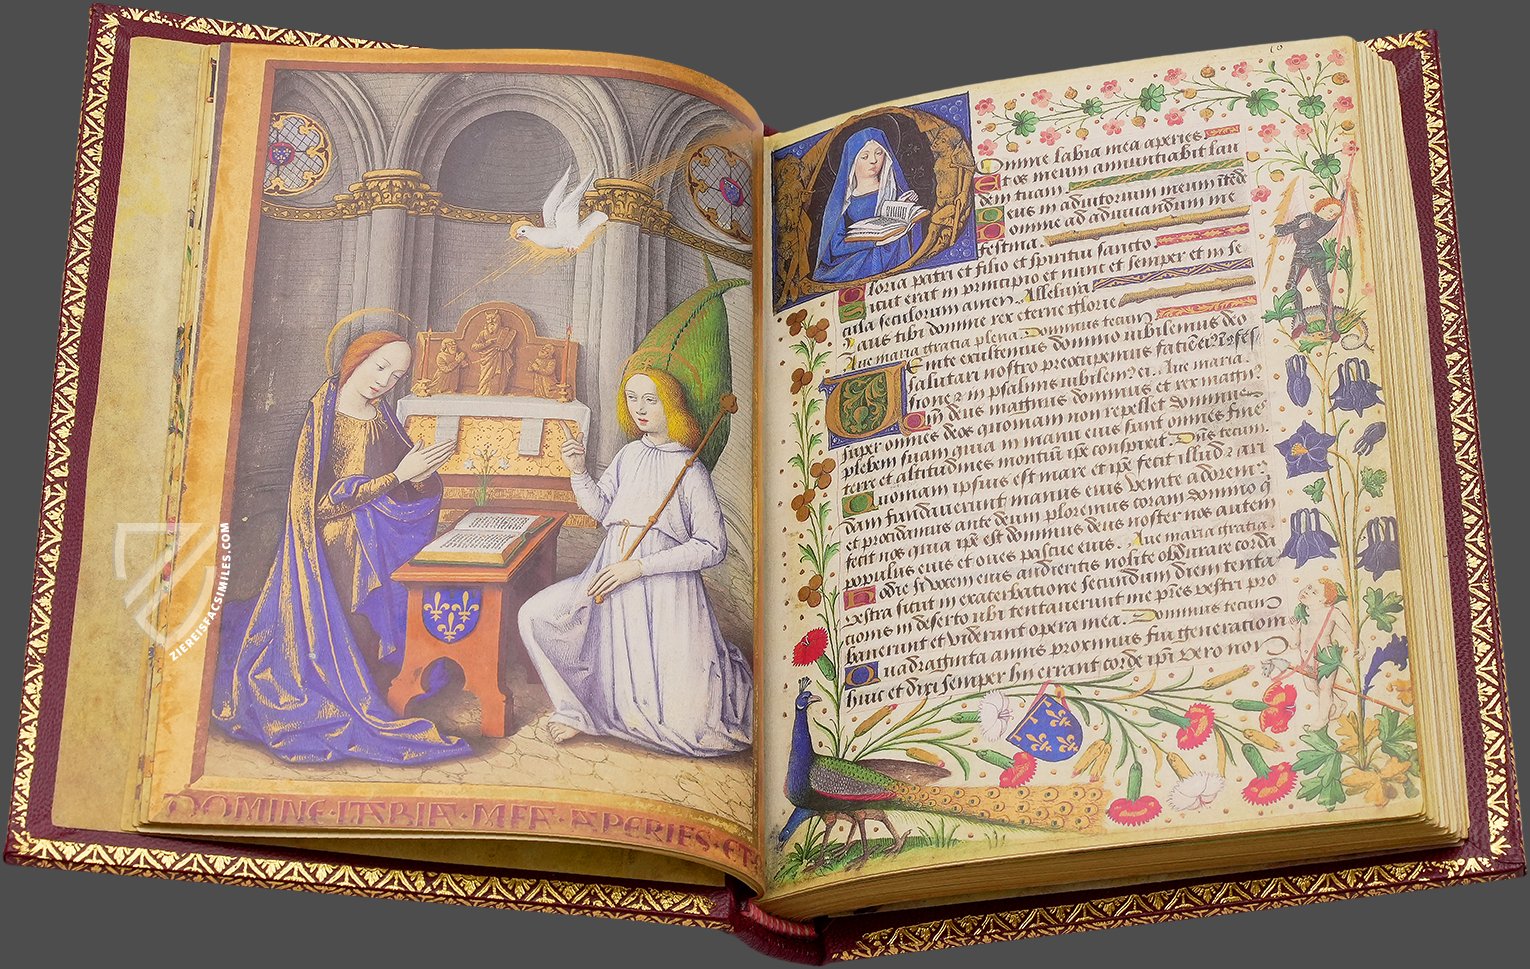 DOMINE · LABIA · MEA · APERIES · ET
Domine labia mea aperies
Et os meum annuntiabit lau
dem tuam.
Deus in adiutorium meum intede
Domine ad adiuuandum me
festina.
Gloria patri et filio et spiritui sancto
Sicut erat in principio et nunc et semper et in se
cula seculorum amen. Alleluya
Laus tibi domine rex eterne glorie
Aue maria gratia plena. Dominus tecum
Uenite exultemus domino iubilemus deo
salutari nostro preocupemus faciē ei
sione z in psalmis iubilem ei. Aue maria.
Qm deus magnus dominus et rex magn
super omnes deos quoniam non repellet dominus
plebem suam quia in manu eius sunt omnes fines
terre et altitudines montiū ipē conspicit. Dns tecum.
Quoniam ipsius est mare et ipē fecit illud z ari
dam fundauerunt manus eius venite adorem
et procidamus ante deum ploremus coram domino q
fecit nos quia ipē est dominus deus noster nos autem
populus eius et oues pascue eius. Aue maria gratia.
Hodie si vocem eius audieritis nolite obdurare corda
vestra sicut in exacerbatione secundum diem tenta
cionis in deserto ubi tentauerunt me pres vestri pro
bauerunt et viderunt opera mea. Dominus tecum
Quadraginta annis proximus fui generationi
huic et dixi semper hii errant corde ipi vero non
ZIEREISFACSIMILES.COM